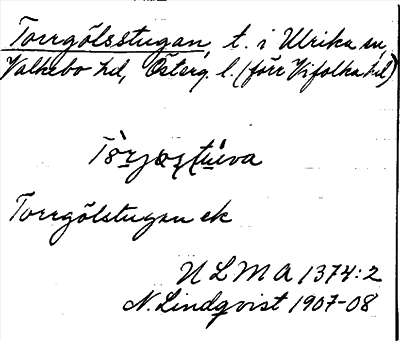 Torrgölsstugan, t. i Ulrika sn,
Valkebo hd, Österg. l. (förr Vifolka hd)
Torrgölstugan ek
ULMA 1374:2
N. Lindqvist 1907-08